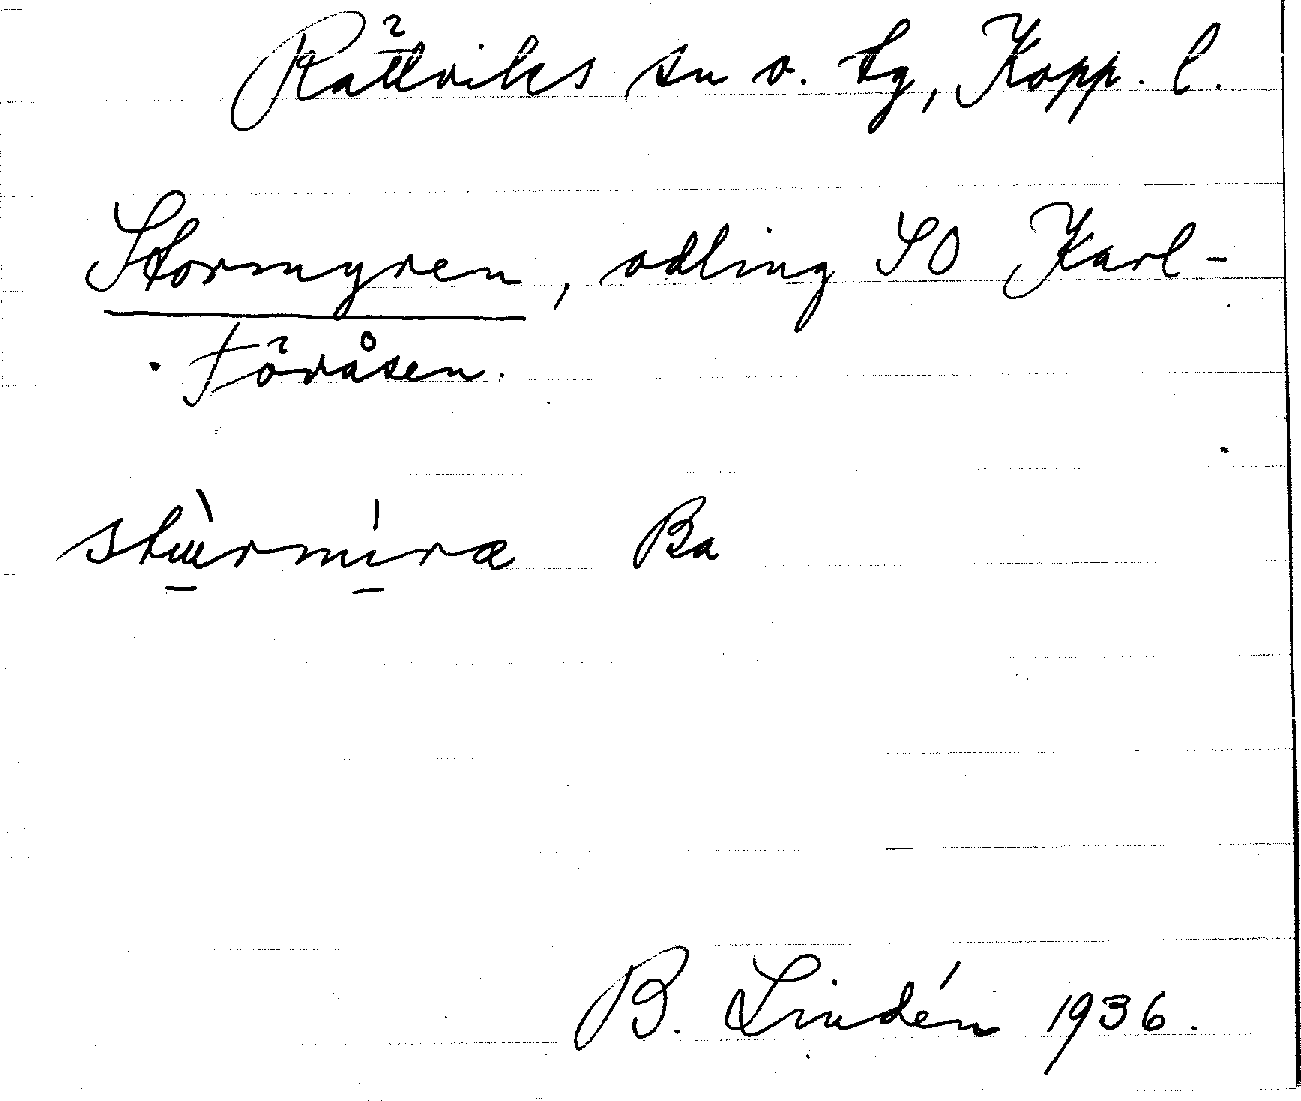 Rättviks sn o. tg, Kopp. l.
Stormyren, odling SO Karl-
Föråsen.
stùrmíræ Ba
B. Lindén 1936.